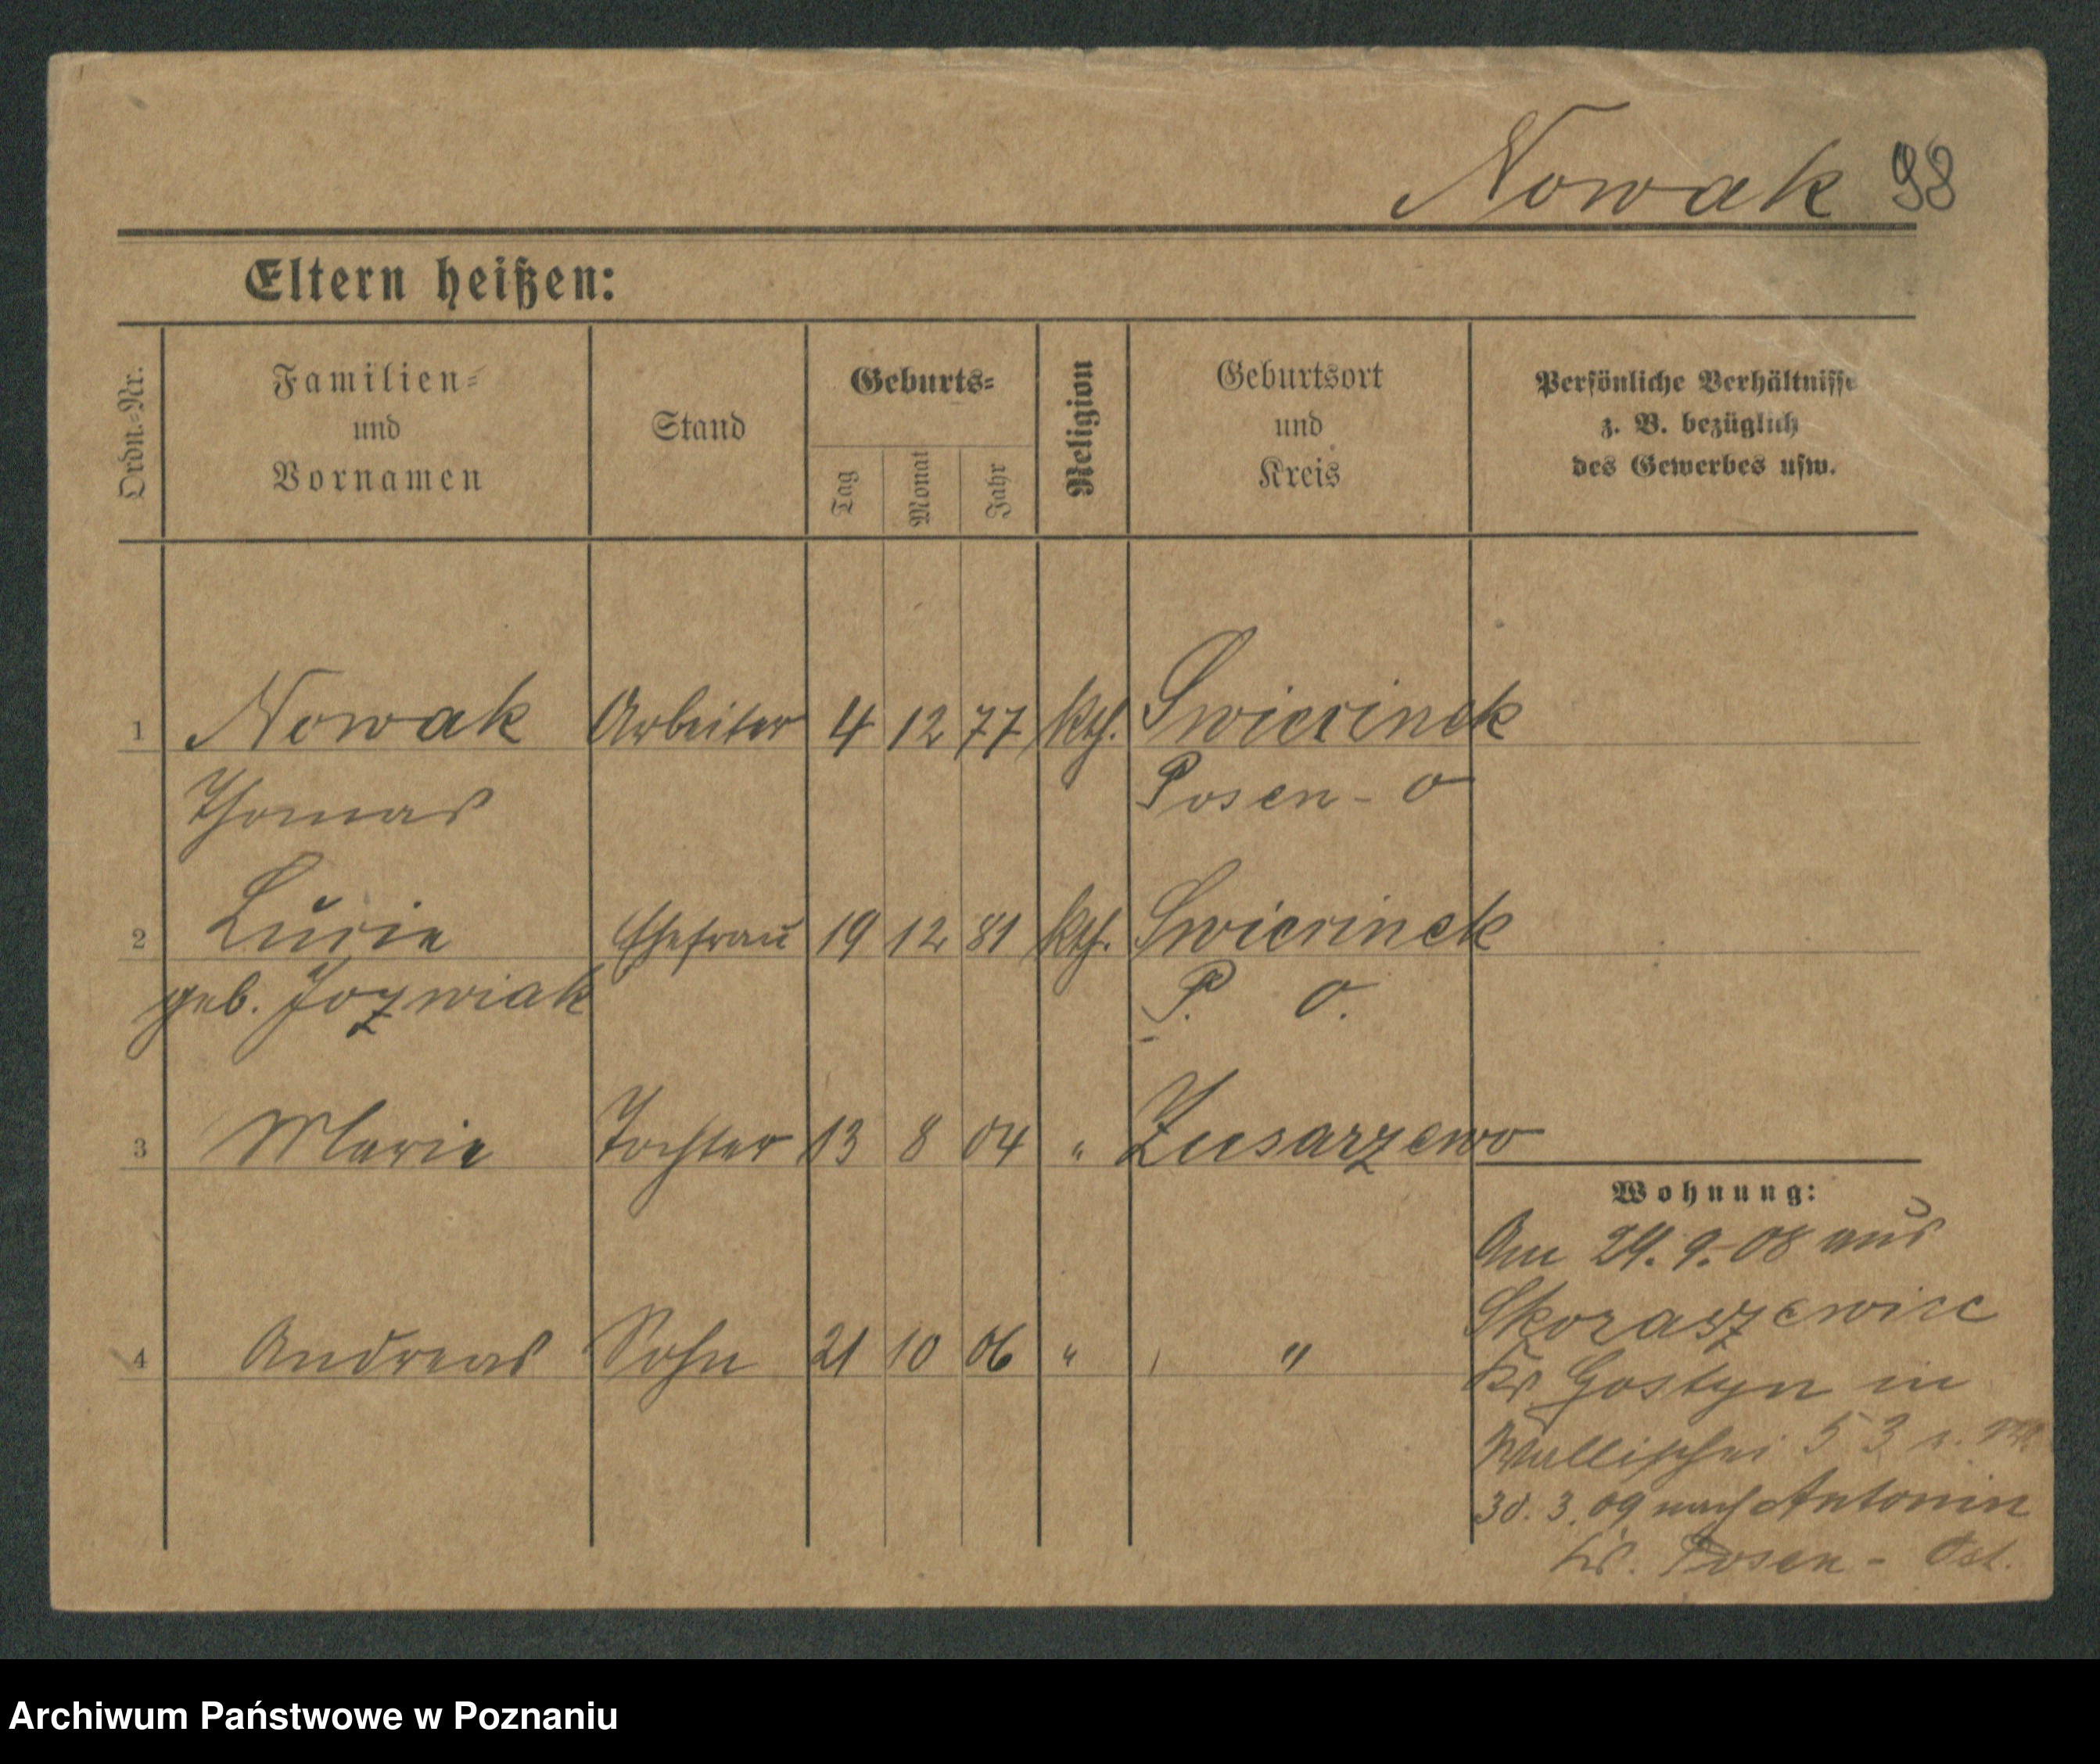 Nowak 98
Eltern heißen:
Ordn.=Nr.
Familien=
und
Vornamen
Stand
Geburts=
Tag
Monat
Jahr
Religion
Geburtsort
und
Kreis
Persönliche Verhältnisse
z. B. bezüglich
des Gewerbes usw.
1 Nowak Arbeiter 4 12 77 kth. Swierinek
Thomas Posen - O
2 Lucie Ehefrau 19 12 81 kth. Swierinek
geb. Jozwiak P. O.
3 Marie Tochter 13 8 04 " Zusarzewo
Wohnung:
4 Andreas Sohn 21 10 06 " "
Am 29. 9. 08 aus
Skoraszewice
Kr. Gostyn in
Wallischei 53
30. 3. 09 nach Antonin
Kr. Posen - Ost.
Archiwum Państwowe w Poznaniu